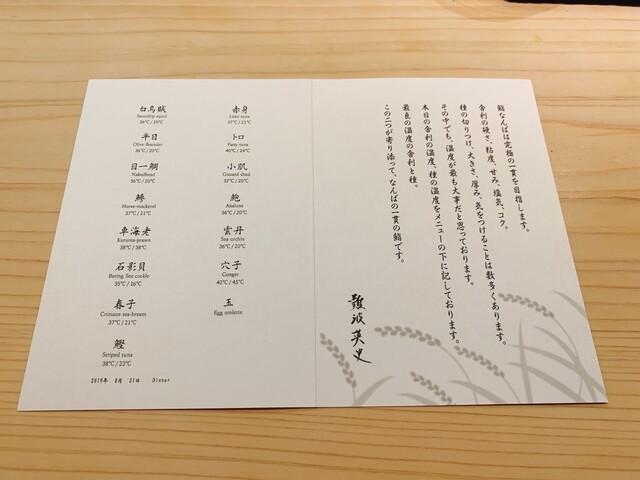 白烏賊
Swordtip squid
36℃ / 19℃
平目
Olive flounder
36℃ / 20℃
目一鯛
Nakedhead
36℃ / 20℃
鯵
Horse-mackerel
37℃ / 21℃
車海老
Kuruma-prawn
38℃ / 38℃
石影貝
Bering Sea cockle
35℃ / 16℃
春子
Crimson sea-bream
37℃ / 21℃
鰹
Striped tuna
38℃ / 23℃
赤身
Lean tuna
37℃ / 21℃
トロ
Fatty tuna
40℃ / 24℃
小肌
Gizzard shad
37℃ / 20℃
鮑
Abalone
36℃ / 20℃
雲丹
Sea urchin
36℃ / 20℃
穴子
Conger
40℃ / 45℃
玉
Egg omlette
2019年 8月 21日 Dinner
鮨なんばは究極の一貫を目指します。
舎利の硬さ、粘度、甘み、塩気、コク。
種の切りつけ、大きさ、厚み、気をつけることは数多くあります。
その中でも、温度が最も大事だと思っております。
本日の舎利の温度、種の温度をメニューの下に記しております。
最良の温度の舎利と種。
この二つが寄り添って、なんばの一貫の鮨です。
難波英史